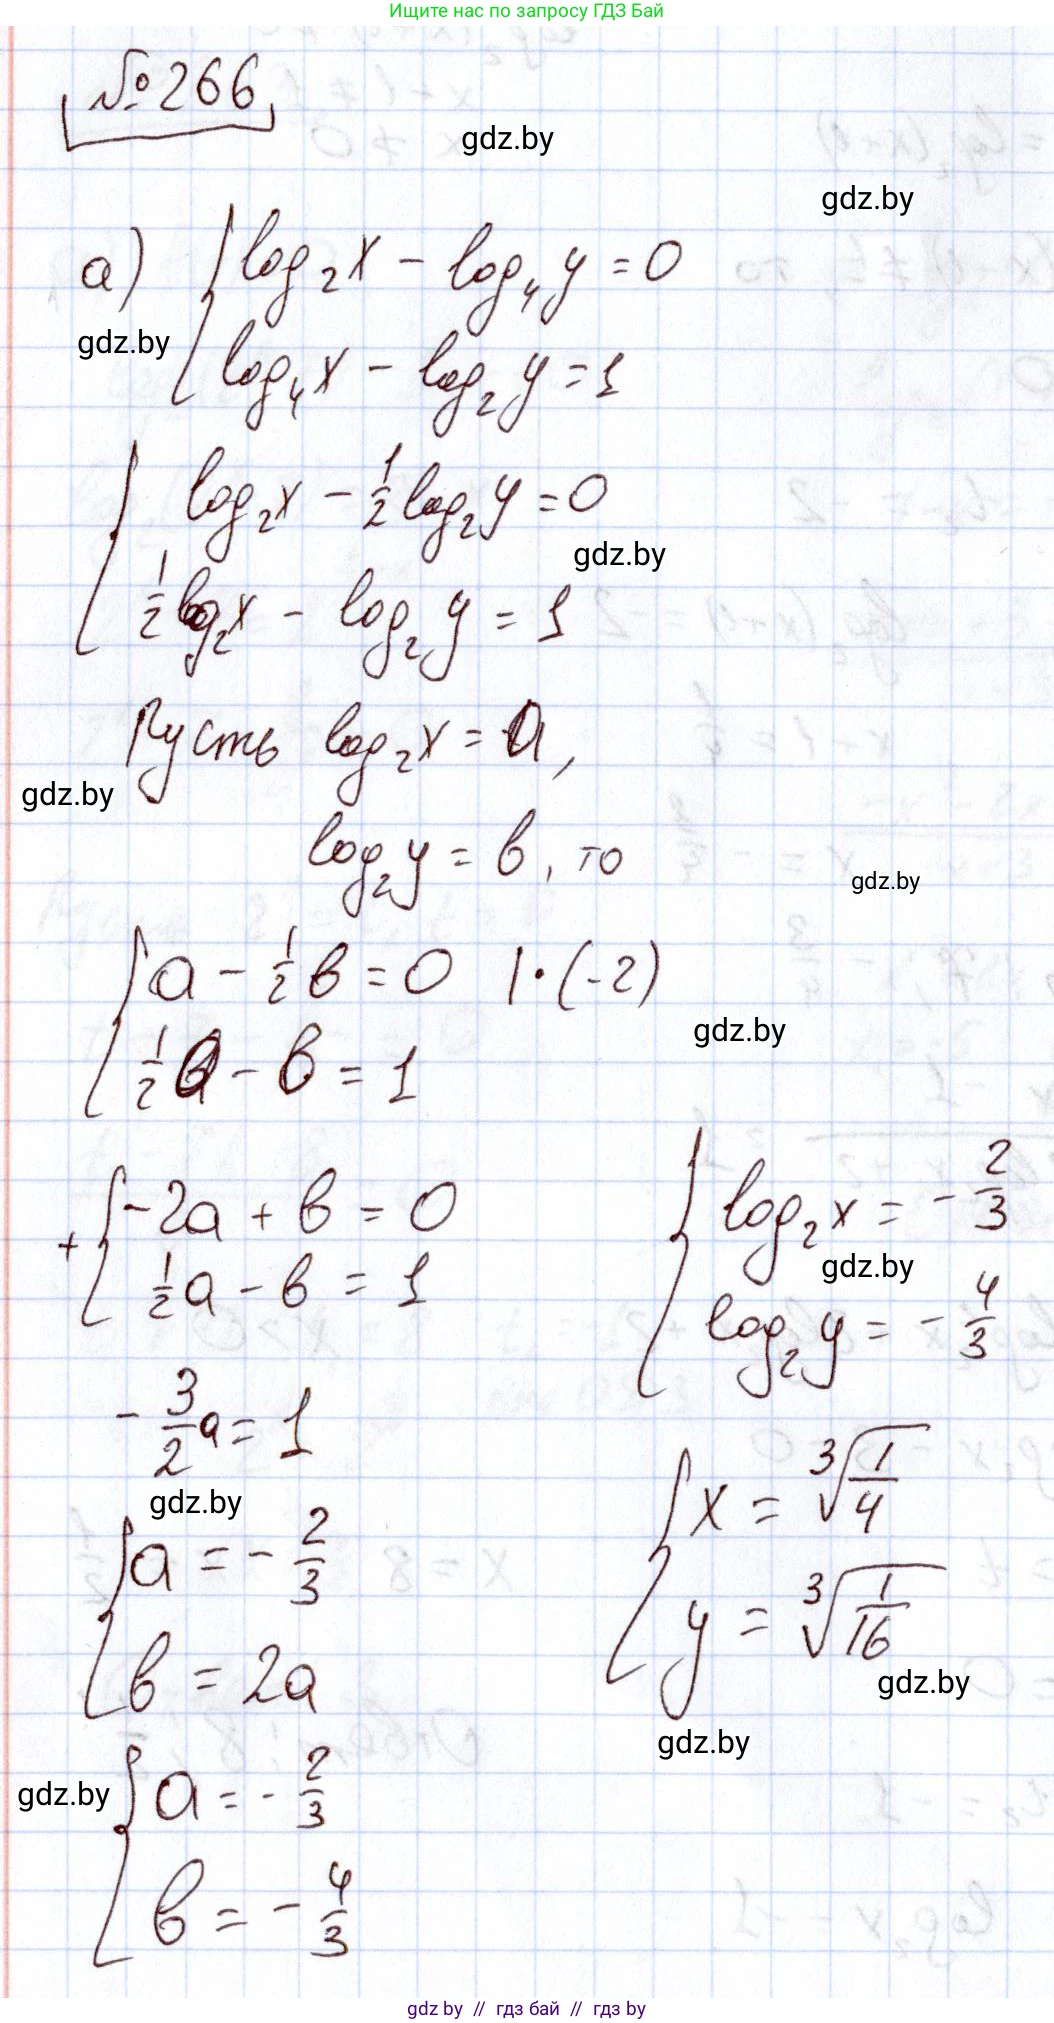 Ищите нас по запросу ГДЗ Бай
№266
gdz.by
gdz.by
а) { log₂x - log₄y = 0
gdz.by
log₄x - log₂y = 1
{ log₂x - 1/2 log₂y = 0
gdz.by
1/2 log₂x - log₂y = 1
Пусть log₂x = a,
gdz.by
log₂y = b, то
gdz.by
{ a - 1/2 b = 0 | · (-2)
gdz.by
1/2 a - b = 1
+ { -2a + b = 0
1/2 a - b = 1
- 3/2 a = 1
gdz.by
{ a = - 2/3
b = 2a
gdz.by
{ a = - 2/3
b = - 4/3
{ log₂x = - 2/3
gdz.by
log₂y = - 4/3
{ x = ∛(1/4)
y = ∛(1/16)
gdz.by
gdz.by
gdz by // гдз бай // гдз by